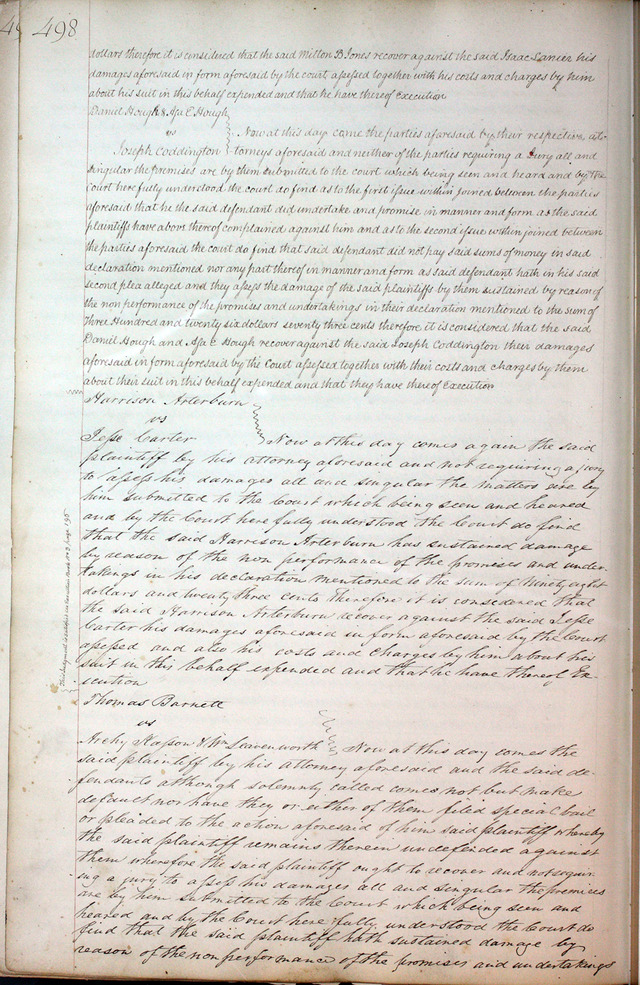 498
dollars therefore it is considered that the said Milton B Jones recover against the said Isaac Lanier his
damages aforesaid in form aforesaid by the court assessed together with his costs and charges by him
about his suit in this behalf expended and that he have thereof Execution
Daniel Hough & Asa E Hough
vs
Now at this day come the parties aforesaid by their respective at-
Joseph Coddington torneys aforesaid and neither of the parties requiring a Jury all and
singular the premises are by them submitted to the court which being seen and heard and by the
court here fully understood the court do find as to the first issue within joined between the parties
aforesaid that he the said defendant did undertake and promise in manner and form as the said
plaintiffs have above thereof complained against him and as to the second issue within joined between
the parties aforesaid the court do find that said defendant did not pay said sums of money in said
declaration mentioned nor any part thereof in manner and form as said defendant hath in his said
second plea alleged and they assess the damage of the said plaintiffs by them sustained by reason of
the non performance of the promises and undertakings in their declaration mentioned to the sum of
Three Hundred and twenty six dollars seventy three cents therefore it is considered that the said
Daniel Hough and Asa E Hough recover against the said Joseph Coddington their damages
aforesaid in form aforesaid by the Court assessed together with their costs and charges by them
about their suit in this behalf expended and that they have thereof Execution
Harrison Arterburn
vs
Jesse Carter Now at this day comes again the said
plaintiff by his attorney aforesaid and not requiring a jury
to assess his damages all and singular the matters are by
him submitted to the Court which being seen and heared
and by the Court here fully understood the Court do find
that the said Harrison Arterburn has sustained damage
by reason of the non performance of the promises and under-
takings in his declaration mentioned to the sum of Ninety eight
dollars and twenty three cents therefore it is consedered that
the said Harrison Arterburn recover against the said Jesse
Carter his damages aforesaid in form aforesaid by the Court
assessed and also his costs and charges by him about his
suit in this behalf expended and that he have thereof Ex-
ecution
This Judgment is satisfied Page 195
Thomas Barnett
vs
Archy & Wm Leavenworth Now at this day comes the
said plaintiff by his attorney aforesaid and the said de-
fendants although solemnly called comes not but make
default nor have they or either of them filed special bail
or pleaded to the action aforesaid of him said plaintiff whereby
the said plaintiff remains therein undefended against
them wherefore the said plaintiff ought to recover and not requir-
ing a jury to assess his damages all and singular the premises
are by him submitted to the Court which being seen and
heared and by the Court here fully understood the Court do
find that the said plaintiff hath sustained damage by
reason of the non performance of the promises and undertakings